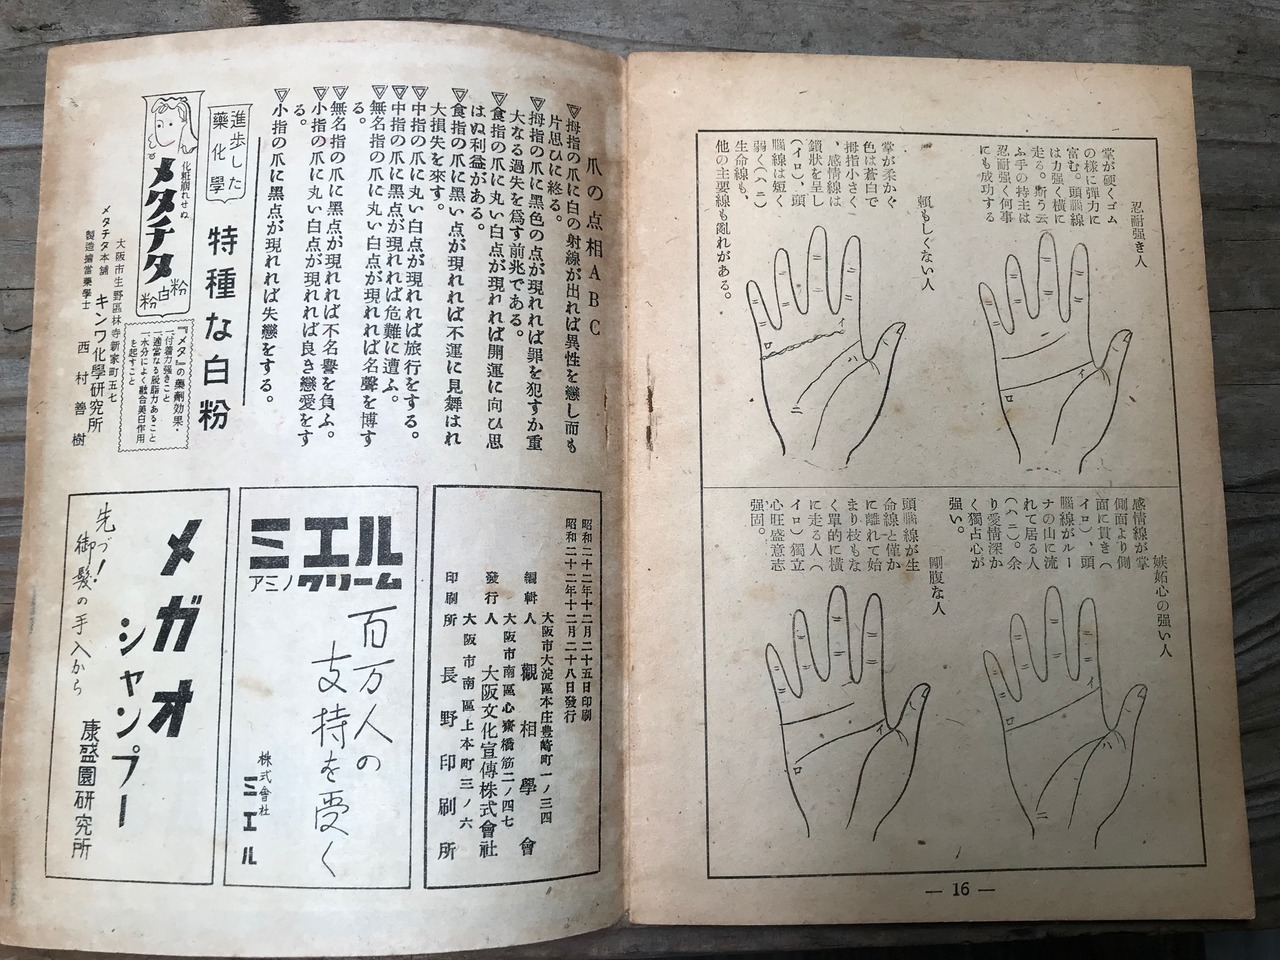 忍耐强き人
掌が硬くゴム
の樣に弾力に
富む。頭腦線
は力强く橫に
走る。斯う云
ふ手の特主は
忍耐强く何事
にも成功する
イ
ロ
賴もしくない人
掌が柔かぐ
色は蒼白で
拇指小さく
、感情線は
鎖狀を呈し
(イロ)、頭
腦線は短く
弱く(ハニ)
生命線も、
他の主要線も亂れがある。
イ
ロ
ハ
ニ
嫉妬心の强い人
感情線が掌
側面より側
面に貫き(
イロ)、頭
腦線がルー
ナの山に流
れて居る人
(ハニ)。余
り愛情深か
く獨占心が
强い。
イ
ロ
ハ
ニ
剛腹な人
頭腦線が生
命線と僅か
に離れて始
まり枝もな
く單的に橫
に走る人(
イロ)獨立
心旺盛意志
强固。
イ
ロ
— 16 —
爪の点相ABC
▽拇指の爪に白の射線が出れば異性を戀し而も
片思ひに終る。
▽拇指の爪に黑色の点が現れれば罪を犯すか重
大なる過失を爲す前兆である。
▽食指の爪に丸い白点が現れれば開運に向ひ思
はぬ利益がある。
▽食指の爪に黑い点が現れれば不運に見舞はれ
大損失を來す。
▽中指の爪に丸い白点が現れれば旅行をする。
▽中指の爪に黑点が現れれば危難に遭ふ。
▽無名指の爪に丸い白点が現れれば名聲を博す
る。
▽無名指の爪に黑点が現れれば不名譽を負ふ。
▽小指の爪に丸い白点が現れれば良き戀愛をす
る。
▽小指の爪に黑点が現れれば失戀をする。
進歩した
藥化學
特種な白粉
化粧崩れせぬ
メタチタ
粉白粉
『メタ』の藥劑効果・
一付着力强きこと
一適當なる脫脂力あること
一水分によく融合美白作用
を起すこと
大阪市生野區林寺新家町五七
メタチタ本舖 キンワ化學研究所
製造擔當藥學士 西村善樹
昭和二十二年十二月二十五日印刷
昭和二十二年十二月二十八日發行
大阪市大淀區本庄豊崎町一ノ三四
編輯人 觀相學會
大阪市南區心齋橋筋二ノ四七
發行人 大阪文化宣傳株式會社
大阪市南區上本町三ノ六
印刷所 長野印刷所
ミエル
アミノクリーム
百万人の
支持を受く
株式會社
ミエル
メガオ
シャンプー
先づ!
御髮の手入から
康盛園研究所